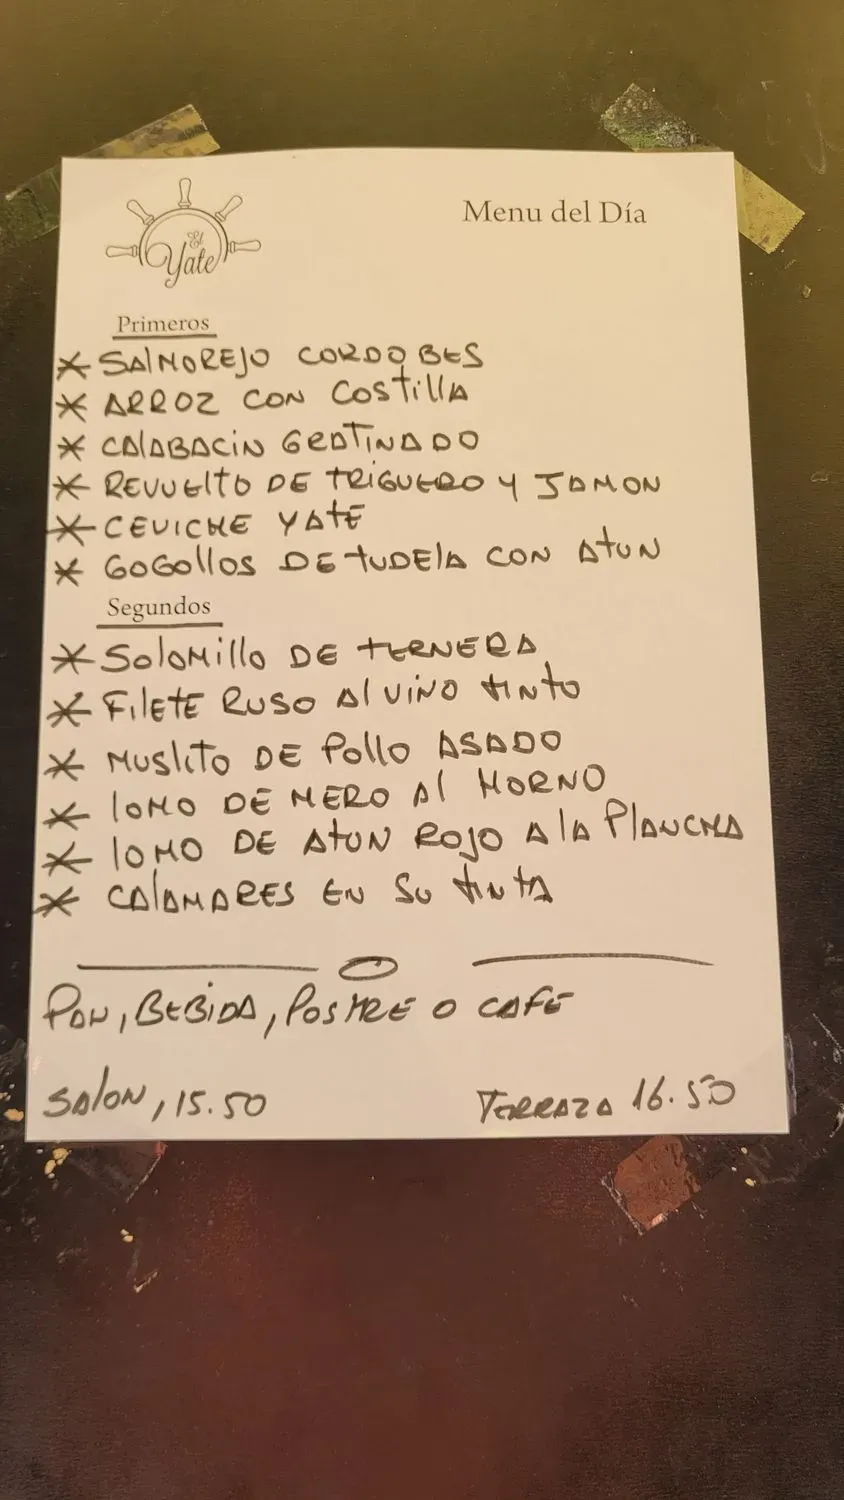 El
Yate
Menu del Día
Primeros
* SALMOREJO CORDOBES
* ARROZ CON COSTILLA
* CALABACIN GRATINADO
* REVUELTO DE TRIGUERO Y JAMON
* CEVICHE YATE
* GOGOLLOS DE TUDELA CON ATUN
Segundos
* SOLOMILLO DE TERNERA
* FILETE RUSO AL VINO TINTO
* MUSLITO DE POLLO ASADO
* LOMO DE MERO AL HORNO
* LOMO DE ATUN ROJO A LA PLANCHA
* CALAMARES EN SU TINTA
PAN, BEBIDA, POSTRE O CAFE
SALON, 15.50
TERRAZA 16.50